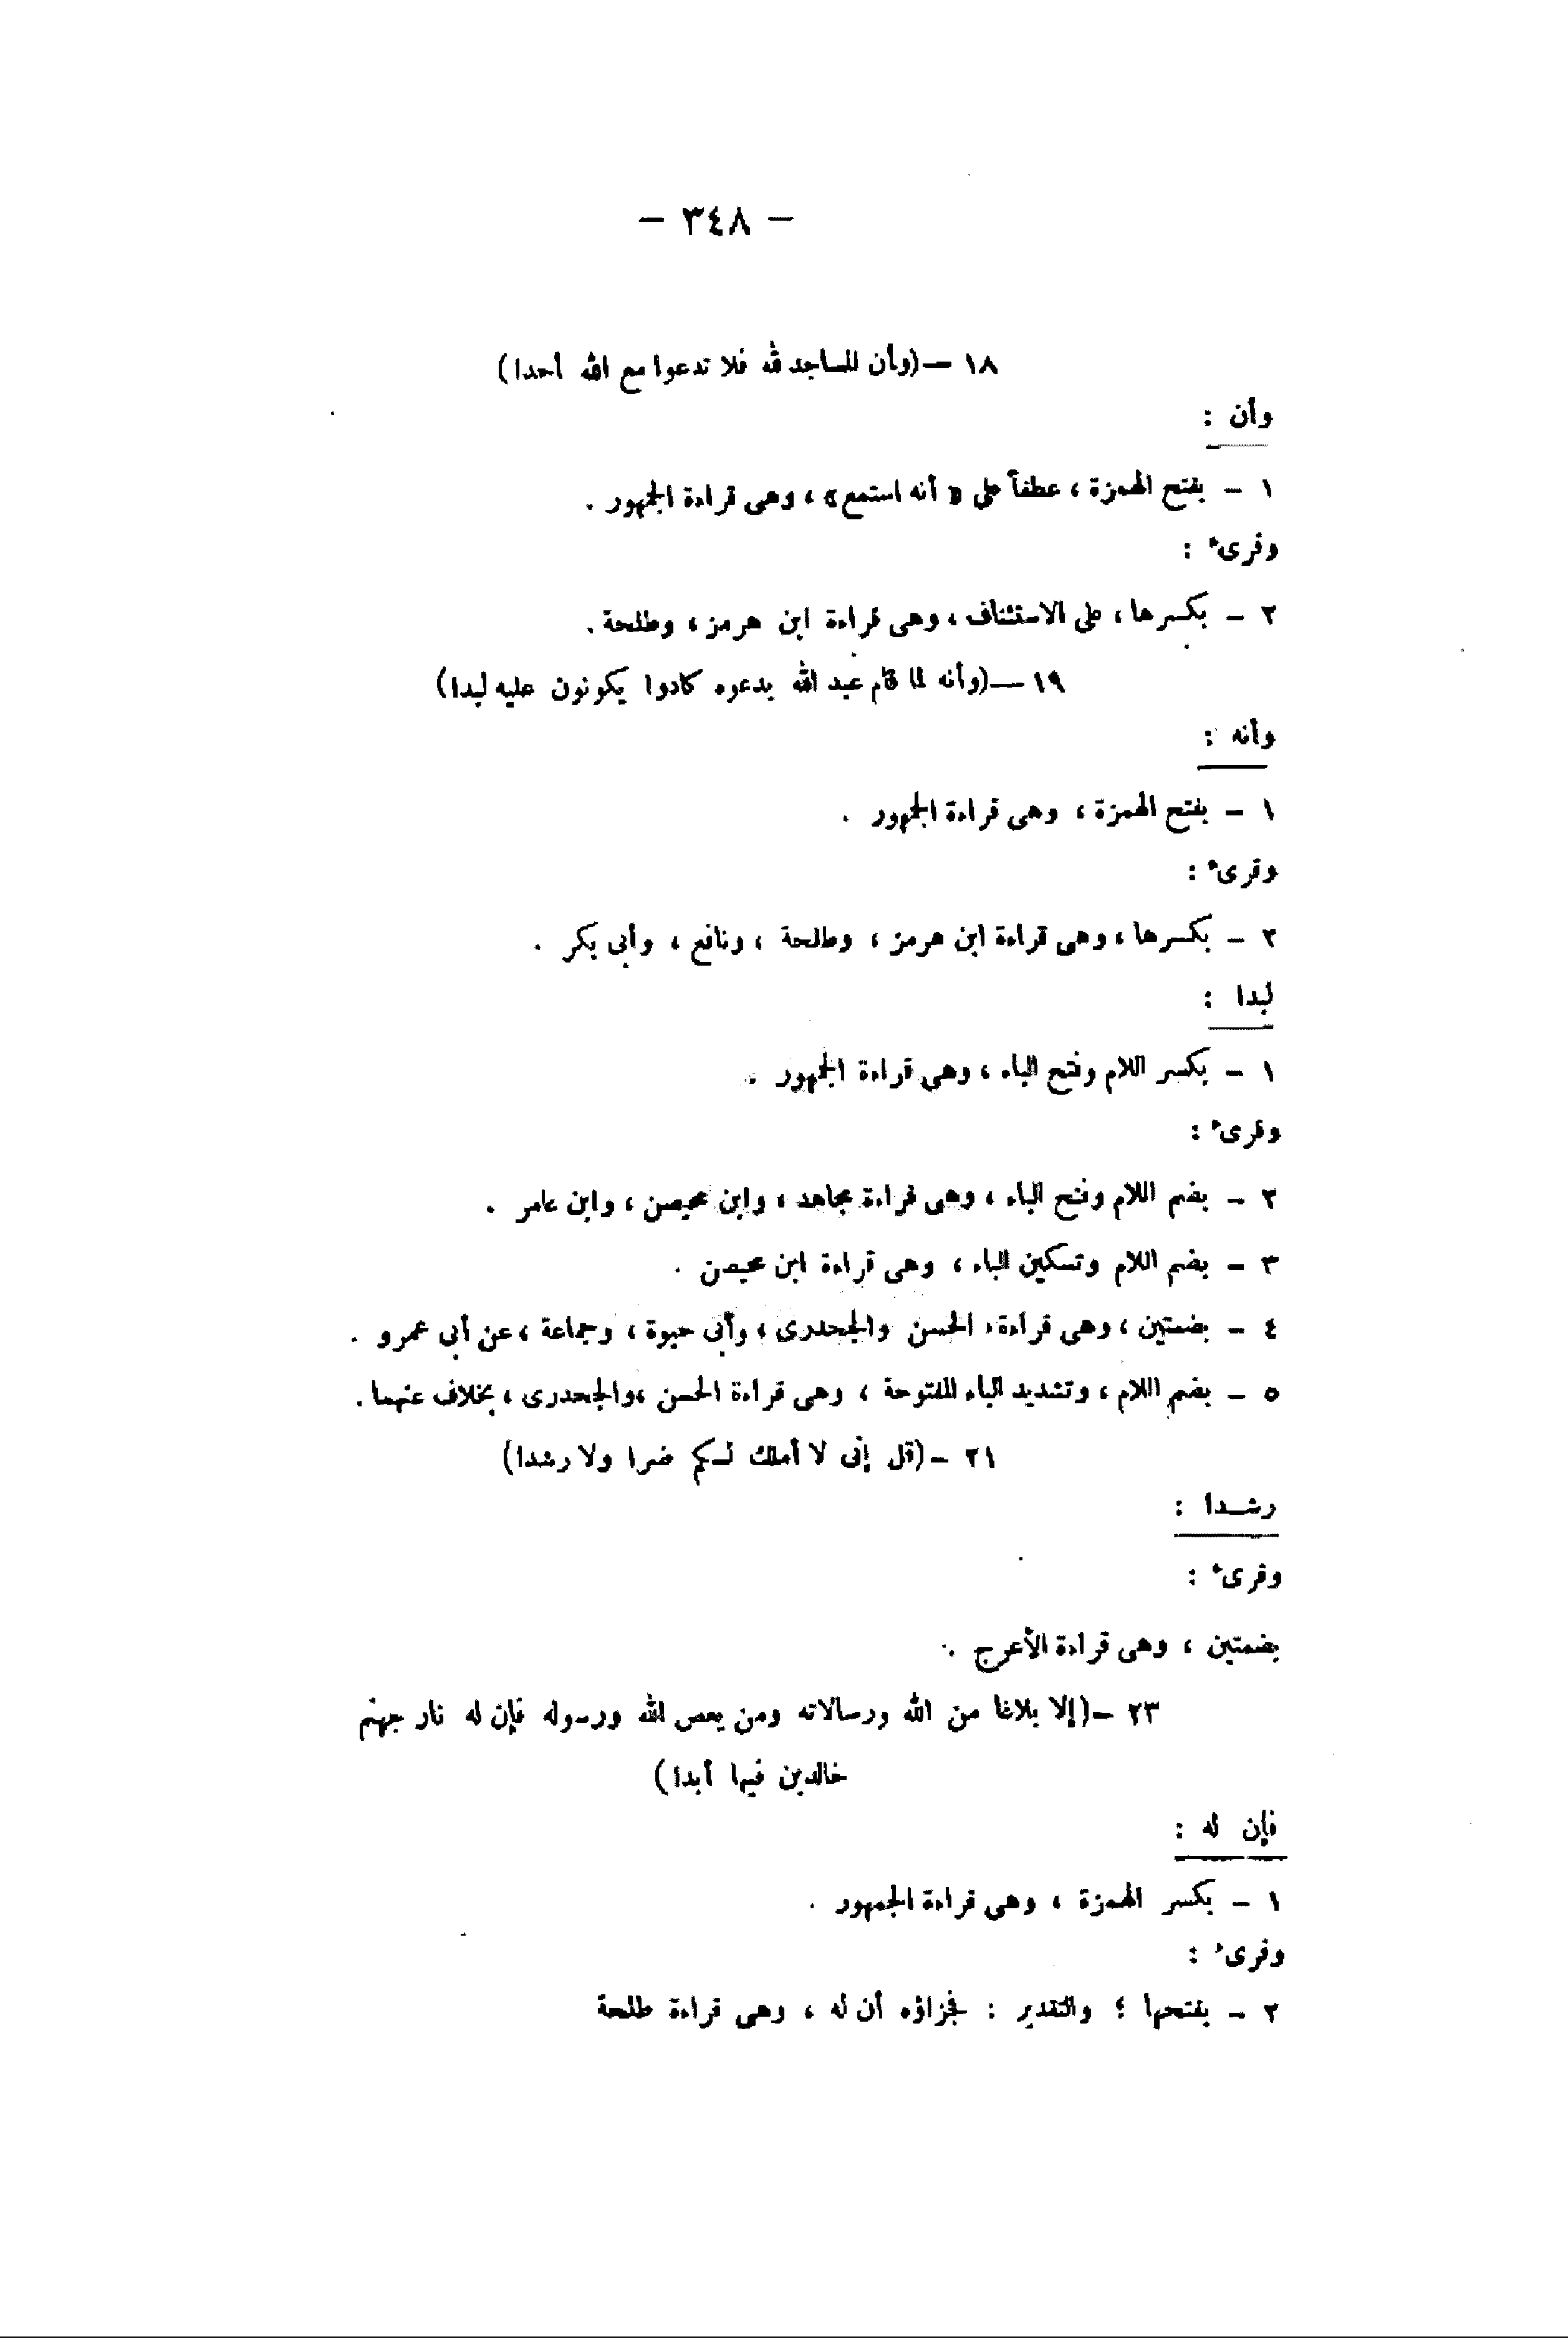 — ٣٤٨ —
١٨ —(وأن المساجد لله فلا تدعوا مع الله أحدا)
وأن :
١ – بفتح الهمزة ، عطفاً على « أنه استمع» ، وهى قراءة الجمهور .
وقرىء :
٢ – بكسرها ، على الاستئناف ، وهى قراءة ابن هرمز ، وطلحة .
١٩ —(وأنه لما قام عبد الله يدعوه كادوا يكونون عليه لبدا)
وأنه :
١ – بفتح الهمزة ، وهى قراءة الجمهور .
وقرىء :
٢ – بكسرها ، وهى قراءة ابن هرمز ، وطلحة ، ونافع ، وأبى بكر .
لبدا :
١ – بكسر اللام وفتح الباء ، وهى قراءة الجمهور .
وقرىء :
٢ – بضم اللام وفتح الباء ، وهى قراءة مجاهد ، وابن محيصن ، وابن عامر .
٣ – بضم اللام وتسكين الباء ، وهى قراءة ابن محيصن .
٤ – بضمتين ، وهى قراءة الحسن والجحدرى ، وأبى حيوة ، وجماعة ، عن أبى عمرو .
٥ – بضم اللام ، وتشديد الباء المفتوحة ، وهى قراءة الحسن ،والجحدرى ، بخلاف عنهما .
٢١ –(قل إنى لا أملك لـكم ضرا ولا رشدا)
رشـدا :
وقرىء :
بضمتين ، وهى قراءة الأعرج .
٢٣ –(إلا بلاغا من الله ورسالاته ومن يعص الله ورسوله فإن له نار جهنم
خالدين فيها أبدا)
فإن له :
١ – بكسر الهمزة ، وهى قراءة الجمهور .
وقرىء :
٢ – بفتحها ؛ والتقدير : فجزاؤه أن له ، وهى قراءة طلحة